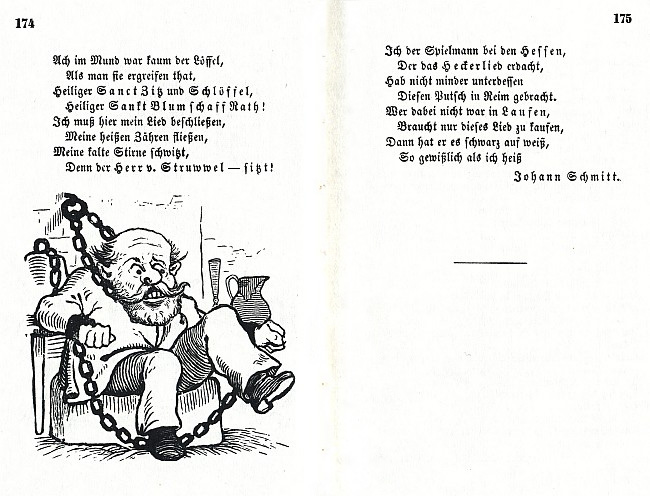 174
Ach im Mund war kaum der Löffel,
Als man sie ergreifen that,
Heiliger Sanct Zitz und Schlöffel,
Heiliger Sankt Blumschaff Rath!
Ich muß hier mein Lied beschließen,
Meine heißen Zähren fließen,
Meine kalte Stirne schwitzt,
Denn der Herr v. Struwwel — sitzt!
175
Ich der Spielmann bei den Hessen,
Der das Heckerlied erdacht,
Hab nicht minder unterdessen
Diesen Putsch in Reim gebracht.
Wer dabei nicht war in Laufen,
Braucht nur dieses Lied zu kaufen,
Dann hat er es schwarz auf weiß,
So gewißlich als ich heiß
Johann Schmitt.